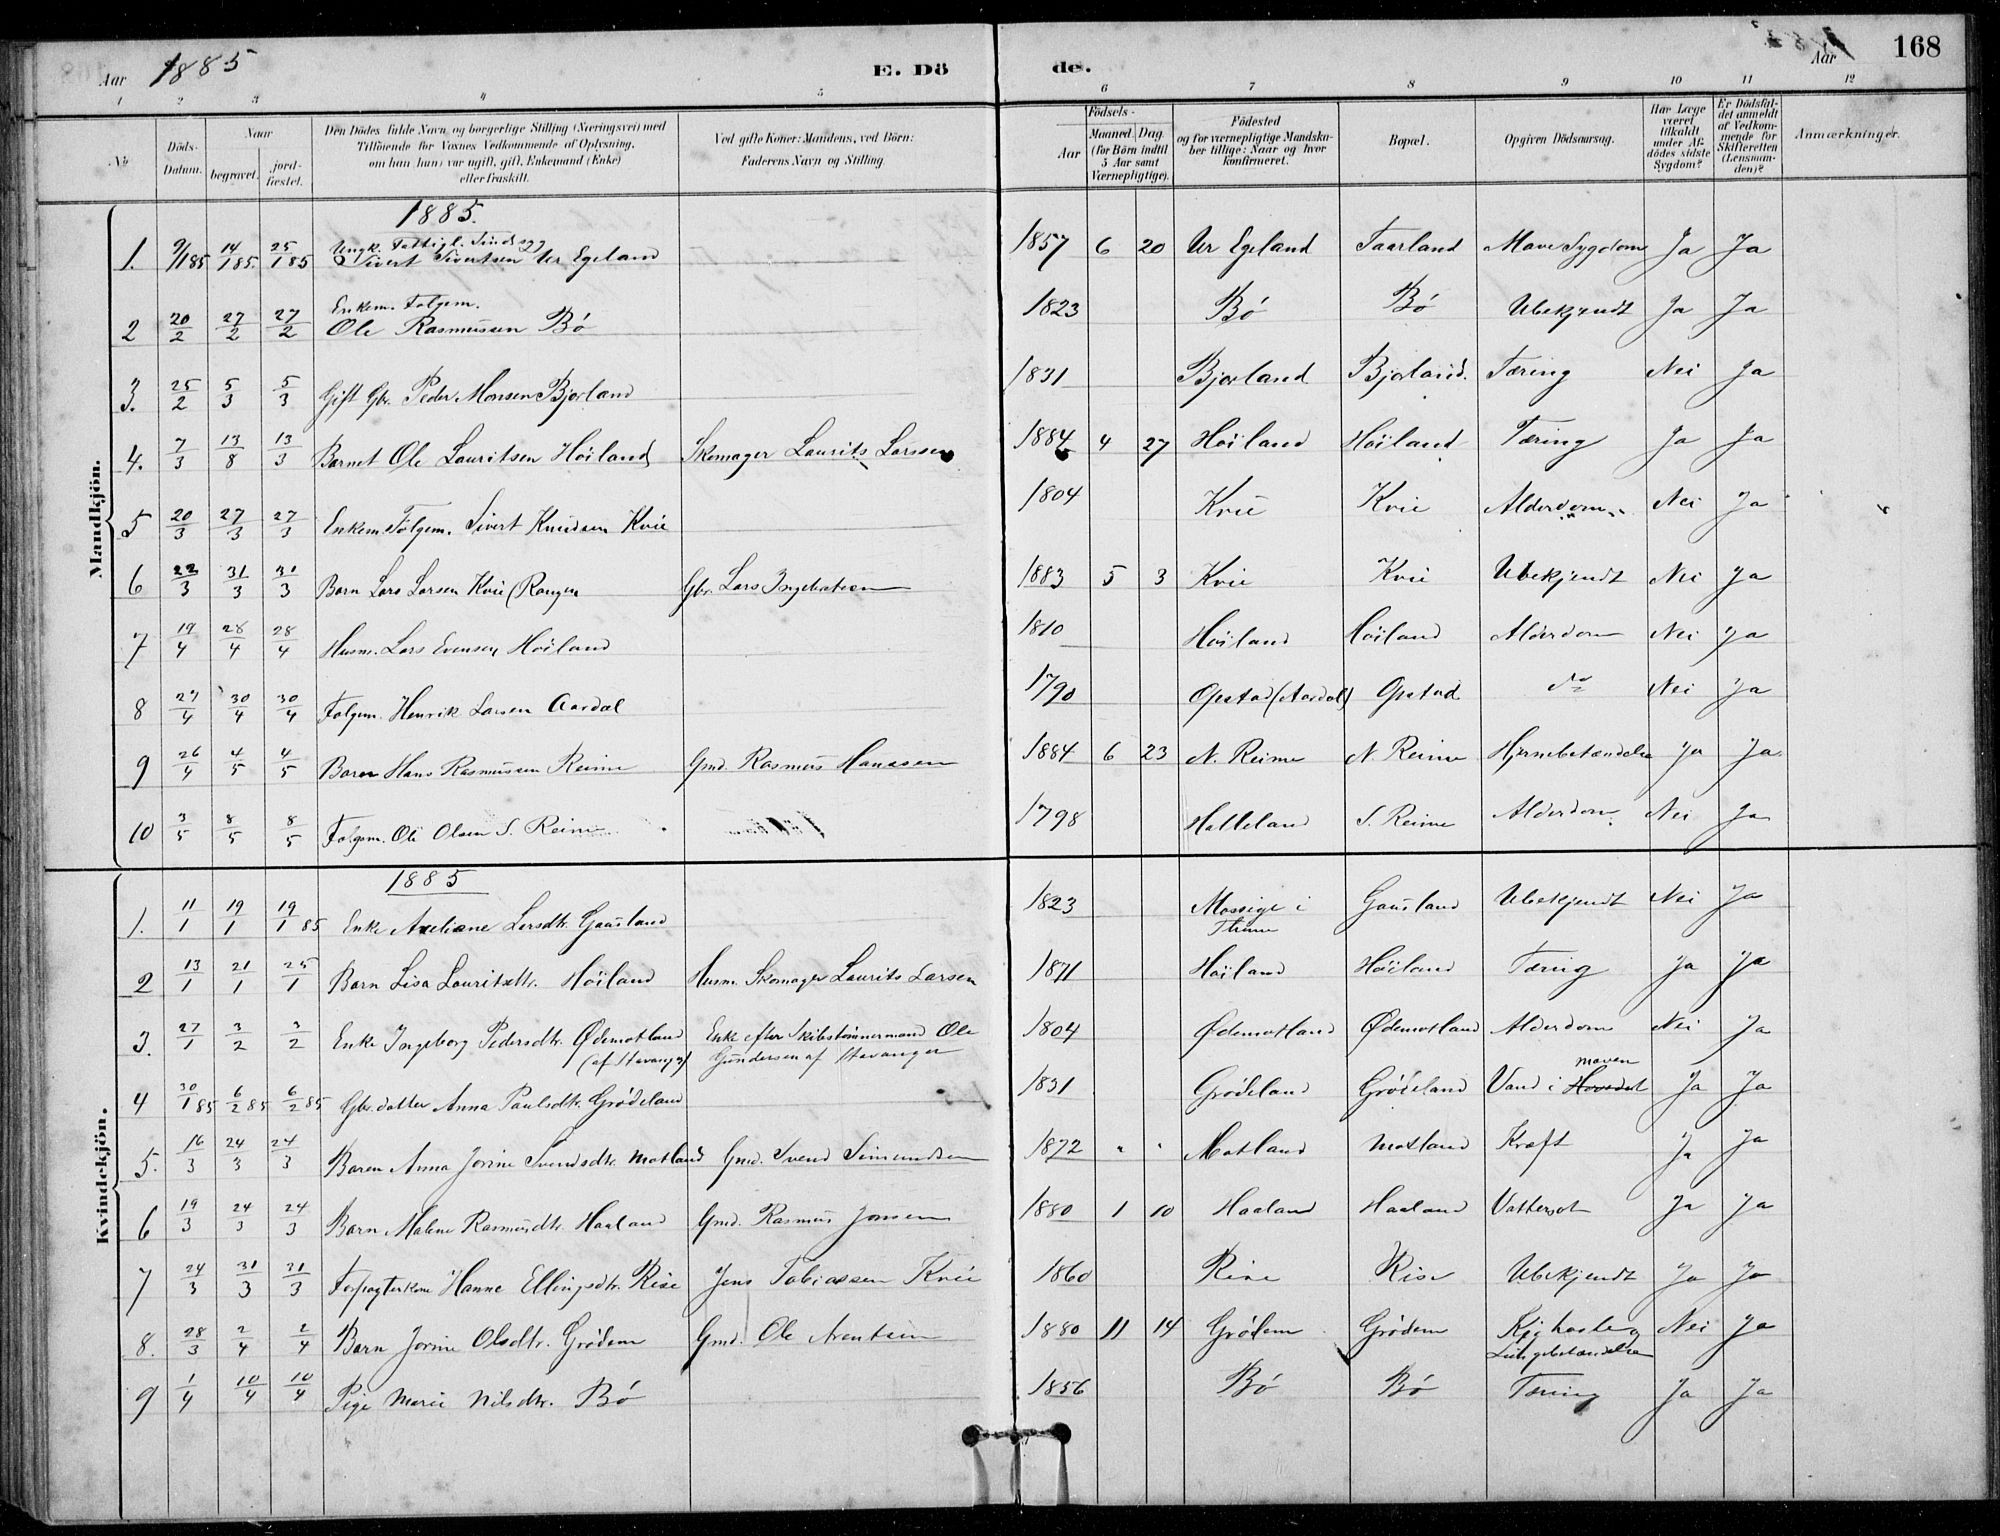 Aar 1885 E. Dö de. Aar 168
1 2 3 4 5 6 7 8 9 10 11 12
No Döds-Datum. Naar begravet. jord-fæstet. Den Dödes fulde Navn og borgerlige Stilling (Næringsvei) med Tilföiende for Voxnes Vedkommende af Oplysning, om han (hun) var ugift, gift, Enkemand (Enke) eller fraskilt. Ved gifte Koner: Mandens, ved Börn: Faderens Navn og Stilling. Födsels- Aar Maaned Dag (for Börn indtil 5 Aar samt Værnepligtige). Födested og for værnepligtige Mandskaber tillige: Naar og hvor konfirmeret. Bopæl. Opgiven Dödsaarsag. Har Læge været tilkaldt under Afdödes sidste Sygdom? Er Dödsfaldet anmeldt af Vedkommende for Skifteretten (Lensmanden)? Anmærkninger.
Mandkjön.
1885.
1. 9/1 85 14/1 85. 25/1 85 Ungk. Fattigl. Sindssyg Sivert Sivertsen Ur Egeland 1857 6 20 Ur Egeland Taarland Mave Sygdom Ja Ja
2 20/2 27/2 27/2 Enkem. Folgem. Ole Rasmussen Bö 1823 Bö Bö Ubekjendt Ja Ja
3. 25/2 5/3 5/3 Gift Gbr. Peder Monsen Bjorland 1831 Bjorland Bjorland. Tæring Nei Ja
4. 7/3 13/8 13/3 Barnet Ole Lauritsen Höiland Skomager Laurits Larssen 1884 4 27 Höiland Höiland Tæring Ja Ja
5 20/3 27/3 27/3 Enkem. Fölgem. Sivert Knudsen Kvie 1804 Kvie Kvie Alderdom Nei Ja
6 22/3 31/3 31/3 Barn Lars Larsen Kvie (Rangen Gbr. Lars Ingebretsen 1883 5 3 Kvie Kvie Ubekjendt Nei Ja
7 19/4 28/4 28/4 Husm. Lars Evensen Höiland 1810 Höiland Höiland Alderdom Nei Ja
8 27/4 30/4 30/4 Folgem. Henrik Larsen Aardal 1790 Opstad (Aardal) Opstad do Nei Ja
9 26/4 4/5 4/5 Baren Hans Rasmussen Reime Gmd. Rasmus Hanssen 1884 6 23 N. Reime N. Reime Hjernebetændelse Ja Ja
10 3/5 8/5 8/5 Folgem. Ole Olsen S. Reime 1798 Halleland S. Reime Alderdom Nei Ja
Kvindekjön.
1885
1. 11/1 19/1 19/1 85 Enke Axeliane Larsdtr. Gausland 1823 Mossige i Thime Gausland Ubekjendt Nei Ja
2 13/1 21/1 25/1 Barn Lisa Lauritsdtr. Höiland Husm. Skomager Laurits Larsen 1871 Höiland Höiland Tæring Ja Ja
3. 27/1 3/2 3/2 Enke Ingeborg Pedersdtr. Ødemotland (af Stavanger) Enke efter Skibstömmermand Ole Gundersen af Stavanger 1804 Ødemotland Ødemotland Alderdom Nei Ja
4 30/1 85 6/2 85 6/2 85 Gbr.datter Anna Paulsdtr. Grödeland 1831 Grödeland Grödeland Vand i Hovedet maven Ja Ja
5. 16/3 24/3 24/3 Baren Anna Jorine Svendsdtr. Motland Gmd. Svend Simundsen 1872 " " Motland Motland Kræft Ja Ja
6 19/3 24/3 24/3 Barn Malene Rasmusdtr. Haaland Gmd. Rasmus Jonsen 1880 1 10 Haaland Haaland Vattersot Ja Ja
7 24/3 31/3 31/3 Forpagterkone Hanne Ellingsdtr. Rise Jens Tobiassen Kvie 1860 Rise Rise Ubekjendt Ja Ja
8. 28/3 2/4 2/4 Barn Jorine Olsdtr. Grödem Gmd. Ole Arentsen 1880 11 14 Grödem Grödem Kighoste og Lungebetændelse Nei Ja
9 1/4 10/4 10/4 Pige Marie Nilsdtr. Bö 1856 Bö Bö Tæring Ja Ja